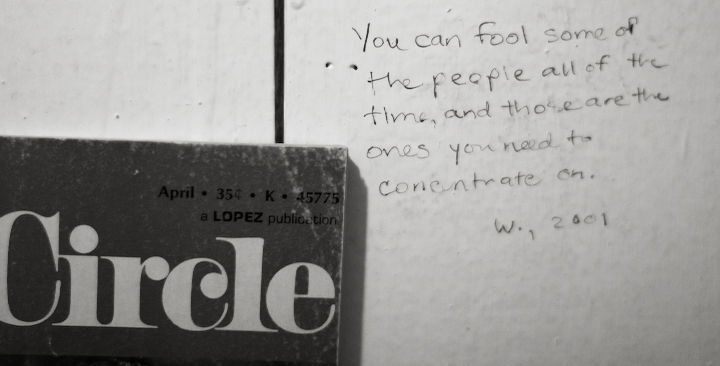 You can fool some of
the people all of the
time, and those are the
ones you need to
concentrate on.
W., 2001
April • 35¢ • K • 45775
a LOPEZ publication
Circle